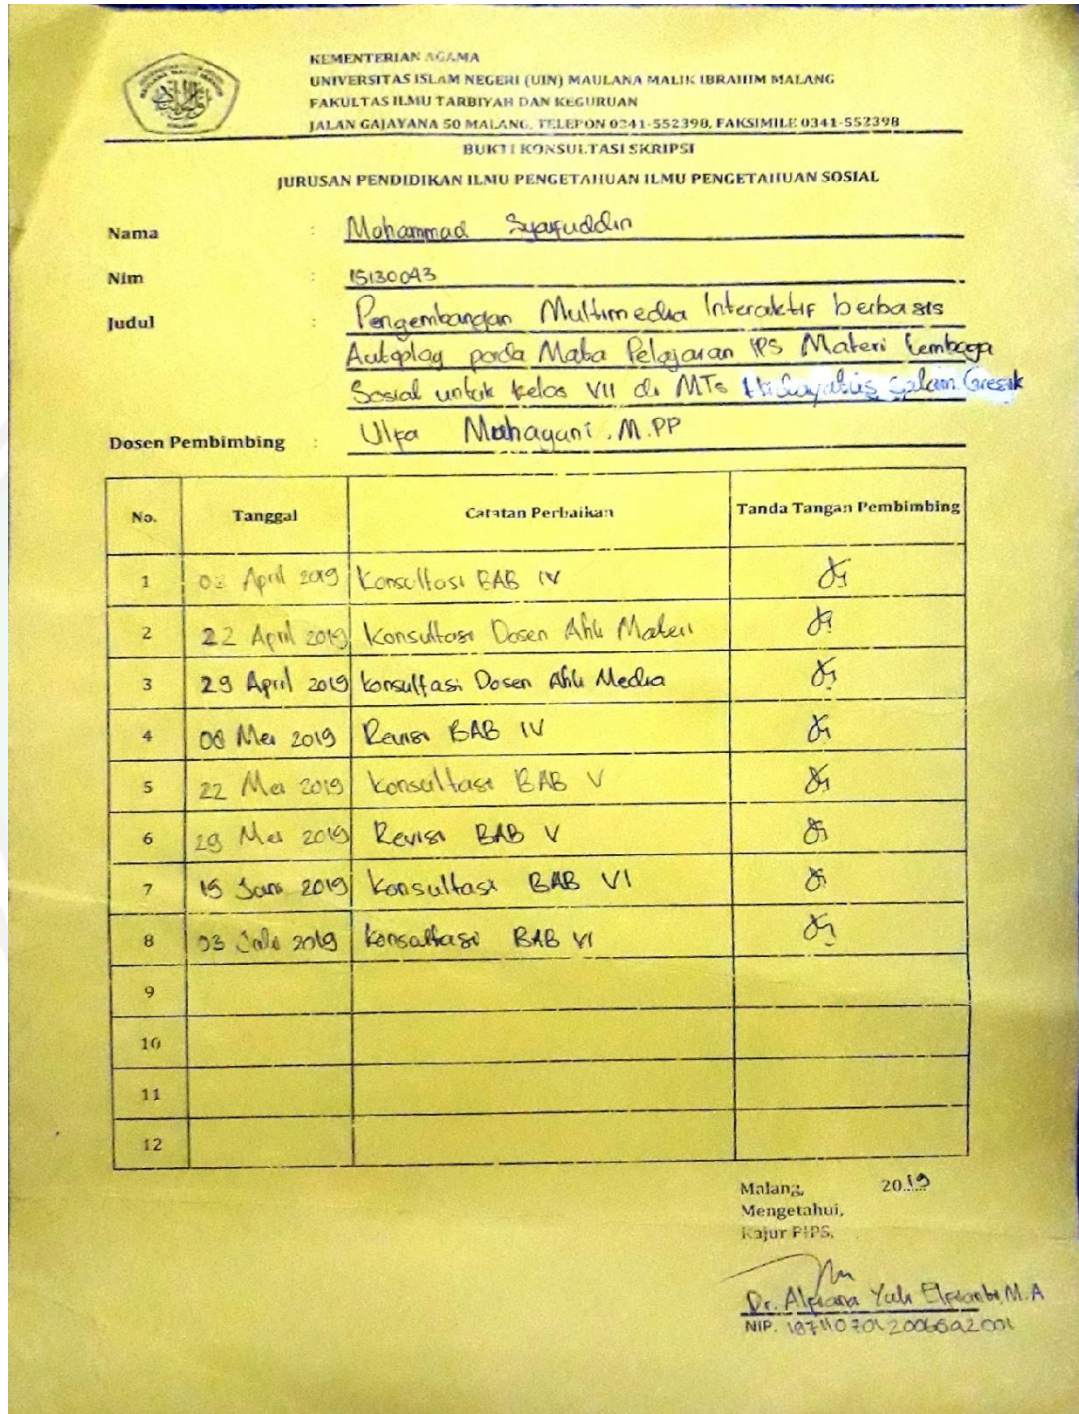 KEMENTERIAN AGAMA
UNIVERSITAS ISLAM NEGERI (UIN) MAULANA MALIK IBRAHIM MALANG
FAKULTAS ILMU TARBIYAH DAN KEGURUAN
JALAN GAJAYANA 50 MALANG, TELEPON 0341-552398, FAKSIMILE 0341-552398
BUKTI KONSULTASI SKRIPSI
JURUSAN PENDIDIKAN ILMU PENGETAHUAN ILMU PENGETAHUAN SOSIAL
Nama : Mohammad Syaifuddin
Nim : 15130043
Judul : Pengembangan Multimedia Interaktif berbasis
Autoplay pada Mata Pelajaran IPS Materi Lembaga
Sosial untuk kelas VII di MTs Salam Gresik
Dosen Pembimbing : Ulfa Muhayani . M.PP
No. Tanggal Catatan Perbaikan Tanda Tangan Pembimbing
1 April 2019 Konsultasi BAB IV
2 22 April 2019 Konsultasi Dosen Ahli Materi
3 29 April 2019 konsultasi Dosen Ahli Media
4 08 Mei 2019 Revisi BAB IV
5 22 Mei 2019 konsultasi BAB V
6 29 Mei 2019 Revisi BAB V
7 2019 konsultasi BAB VI
8 03 Juli 2019 konsultasi BAB VI
9
10
11
12
Malang, 2019
Mengetahui,
Kajur PIPS,
Dr. Alfiana Yuli M.A
NIP.